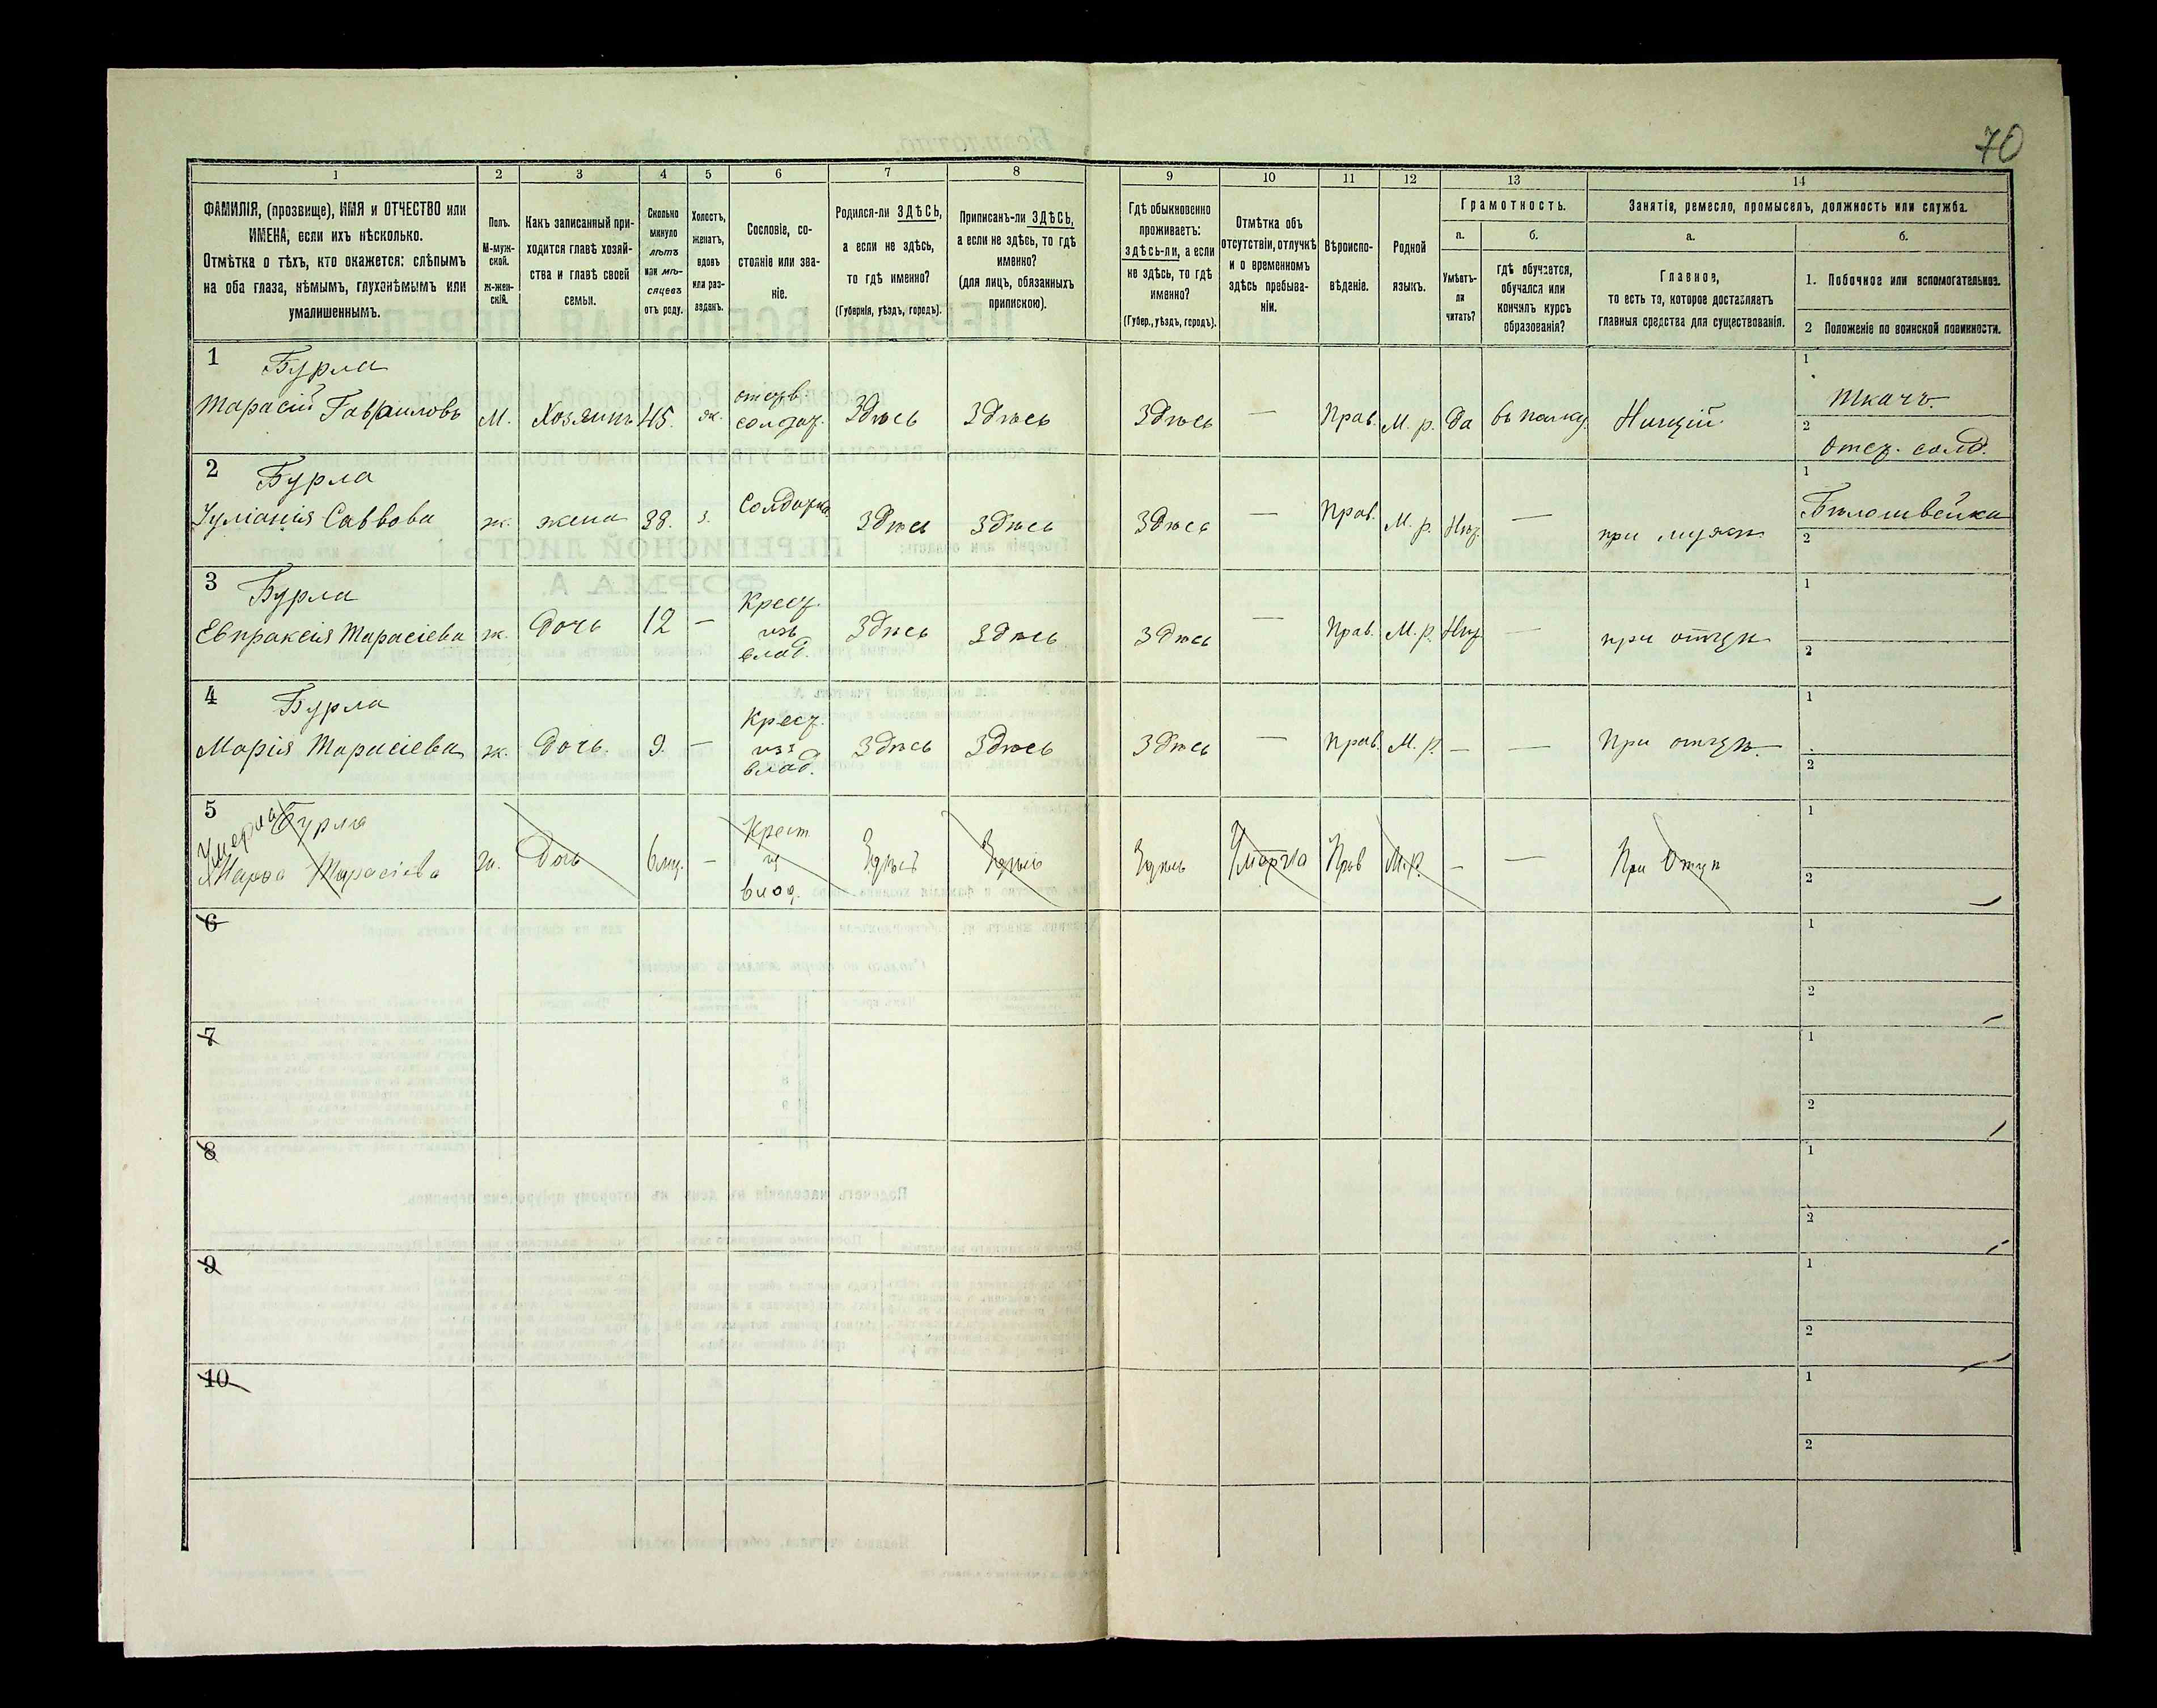 70
1
2
3
4
5
6
7
8
9
10
11
12
13
14
ФАМИЛІЯ, (прозвище), ИМЯ и ОТЧЕСТВО или
ИМЕНА, если ихъ нѣсколько.
Отмѣтка о тѣхъ, кто окажется: слѣпымъ
на оба глаза, нѣмымъ, глухонѣмымъ или
умалишеннымъ.
Полъ.
М-муж-
ской.
ж-жен-
скій.
Какъ записанный при-
ходится главѣ хозяй-
ства и главѣ своей
семьи.
Сколько
минуло
лѣтъ
или мѣ-
сяцевъ
отъ роду.
Холостъ,
женатъ,
вдовъ
или раз-
веденъ.
Сословіе, со-
стояніе или зва-
ніе.
Родился-ли ЗДѢСЬ,
а если не здѣсь,
то гдѣ именно?
(Губернія, уѣздъ, городъ).
Приписанъ-ли ЗДѢСЬ,
а если не здѣсь, то гдѣ
именно?
(для лицъ, обязанныхъ
припискою).
Гдѣ обыкновенно
проживаетъ:
здѣсь-ли, а если
не здѣсь, то гдѣ
именно?
(Губер., уѣздъ, городъ).
Отмѣтка объ
отсутствіи, отлучкѣ
и о временномъ
здѣсь пребыва-
ніи.
Вѣроиспо-
вѣданіе.
Родной
языкъ.
Грамотность.
а.
Умѣетъ-
ли
читать?
б.
гдѣ обучается,
обучался или
кончилъ курсъ
образованія?
Занятія, ремесло, промыселъ, должность или служба.
а.
Главное,
то есть то, которое доставляетъ
главныя средства для существованія.
б.
1. Побочное или вспомогательное.
2 Положеніе по воинской повинности.
1
Бурла
Тарасій Гавриловъ
М.
Хозяинъ
45.
ж.
отст. в
солдат.
Здѣсь
Здѣсь
Здѣсь
—
Прав.
М. р.
Да
въ полку
Нищій
1
Ткачъ.
2
Отст. солд.
2
Бурла
Іуліанія Саввова
ж.
жена
38.
з.
Солдатка
Здѣсь
Здѣсь
Здѣсь
—
Прав.
М. р.
Нѣт.
—
при мужѣ
1
Бѣлошвейка
2
3
Бурла
Евпраксія Тарасіева
ж.
Дочь
12
—
Крест.
изъ
влад.
Здѣсь
Здѣсь
Здѣсь
—
Прав.
М. р.
Нѣт
—
при отцѣ
1
2
4
Бурла
Марія Тарасіева
ж.
Дочь.
9.
—
Крест.
изъ
влад.
Здѣсь
Здѣсь
Здѣсь
—
Прав.
М. р.
—
—
При отцѣ.
1
2
5
Умерла
Бурла
Марѳа Тарасіева
ж.
Дочь
6 мѣс.
—
Крест
из
влад.
Здѣсь
Здѣсь
Здѣсь
Умерла
Прав
М.р.
—
—
При Отцѣ
1
2
6
1
2
7
1
2
8
1
2
9
1
2
10
1
2